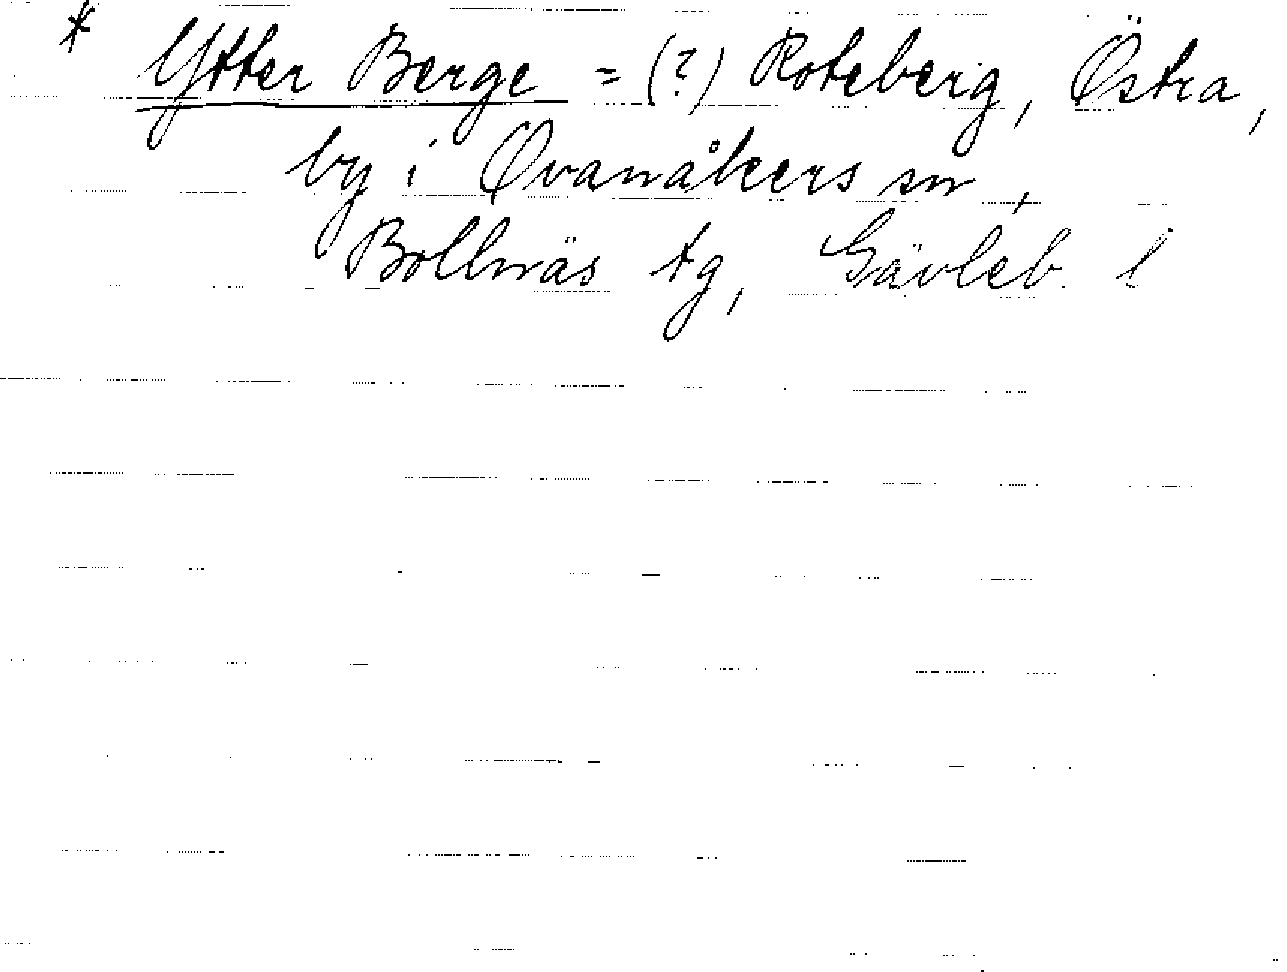 * Ytter Berge = (?) Roteberg, Östra,
by i Ovanåkers sn,
Bollnäs tg, Gävleb. l